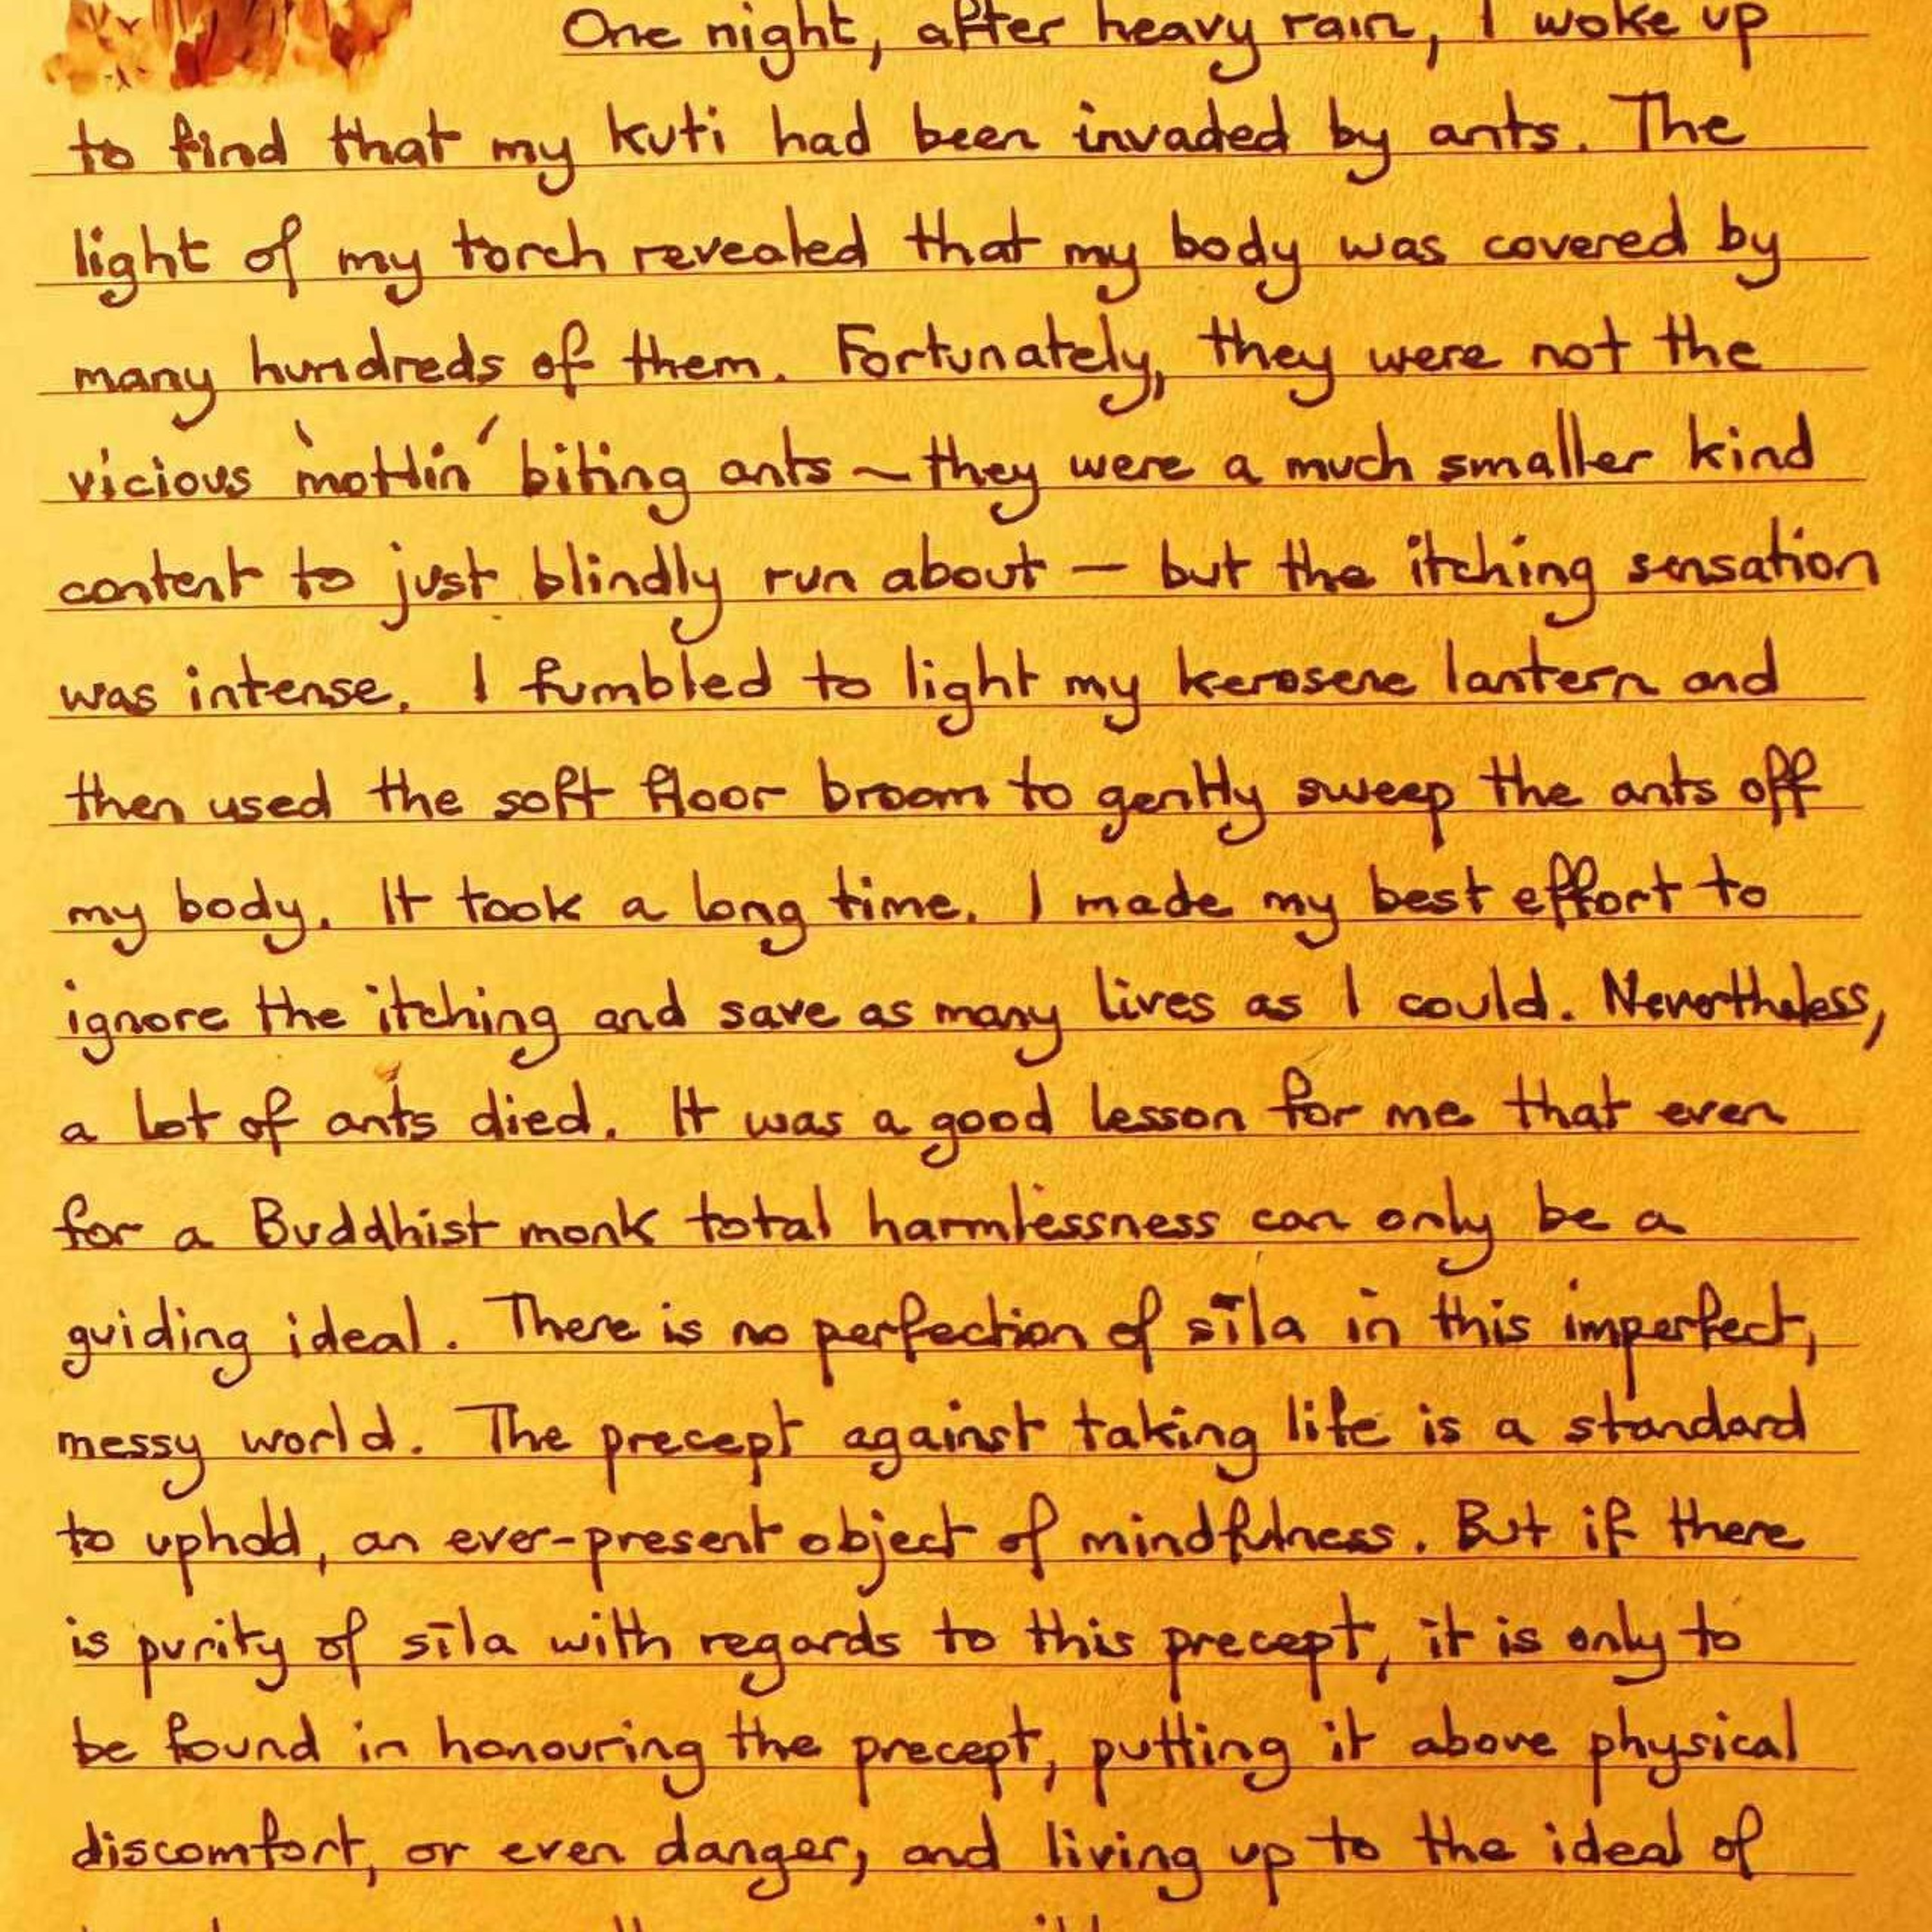 One night, after heavy rain, I woke up
to find that my kuti had been invaded by ants. The
light of my torch revealed that my body was covered by
many hundreds of them. Fortunately, they were not the
vicious 'mottin' biting ants ~ they were a much smaller kind
content to just blindly run about – but the itching sensation
was intense. I fumbled to light my kerosene lantern and
then used the soft floor broom to gently sweep the ants off
my body. It took a long time. I made my best effort to
ignore the itching and save as many lives as I could. Nevertheless,
a lot of ants died. It was a good lesson for me that even
for a Buddhist monk total harmlessness can only be a
guiding ideal. There is no perfection of sīla in this imperfect,
messy world. The precept against taking life is a standard
to uphold, an ever-present object of mindfulness. But if there
is purity of sīla with regards to this precept, it is only to
be found in honouring the precept, putting it above physical
discomfort, or even danger, and living up to the ideal of